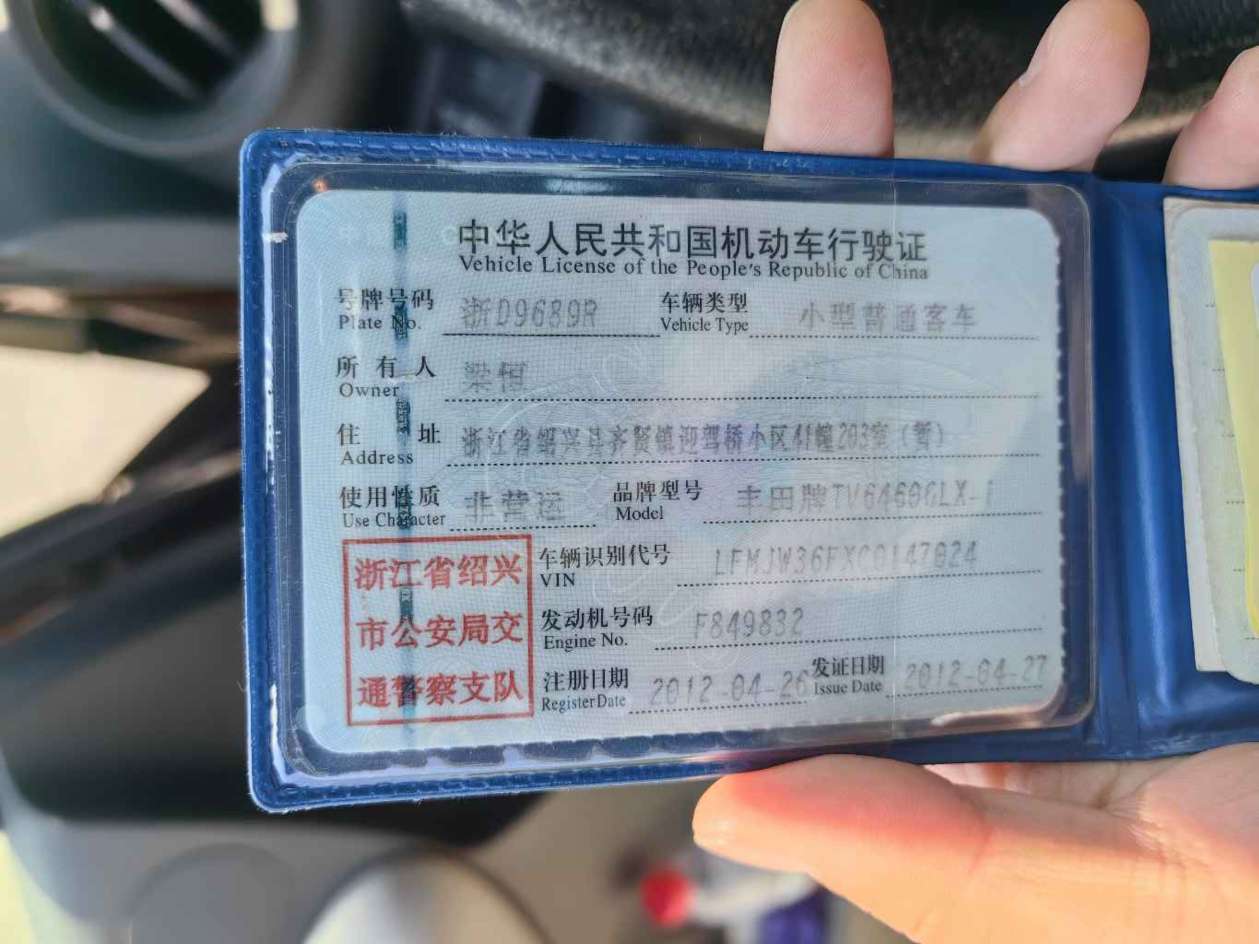 中华人民共和国机动车行驶证
Vehicle License of the People's Republic of China
号牌号码 浙D9689R 车辆类型 小型普通客车
Plate No. Vehicle Type
所有人 梁恒
Owner
住址 浙江省绍兴县齐贤镇迎驾桥小区41幢203室（暂）
Address
使用性质 非营运 品牌型号 丰田牌TV6460GLX-I
Use Character Model
浙江省绍兴
市公安局交
通警察支队
车辆识别代号 LFMJW36FXC0147024
VIN
发动机号码 F849832
Engine No.
注册日期 2012-04-26 发证日期 2012-04-27
Register Date Issue Date